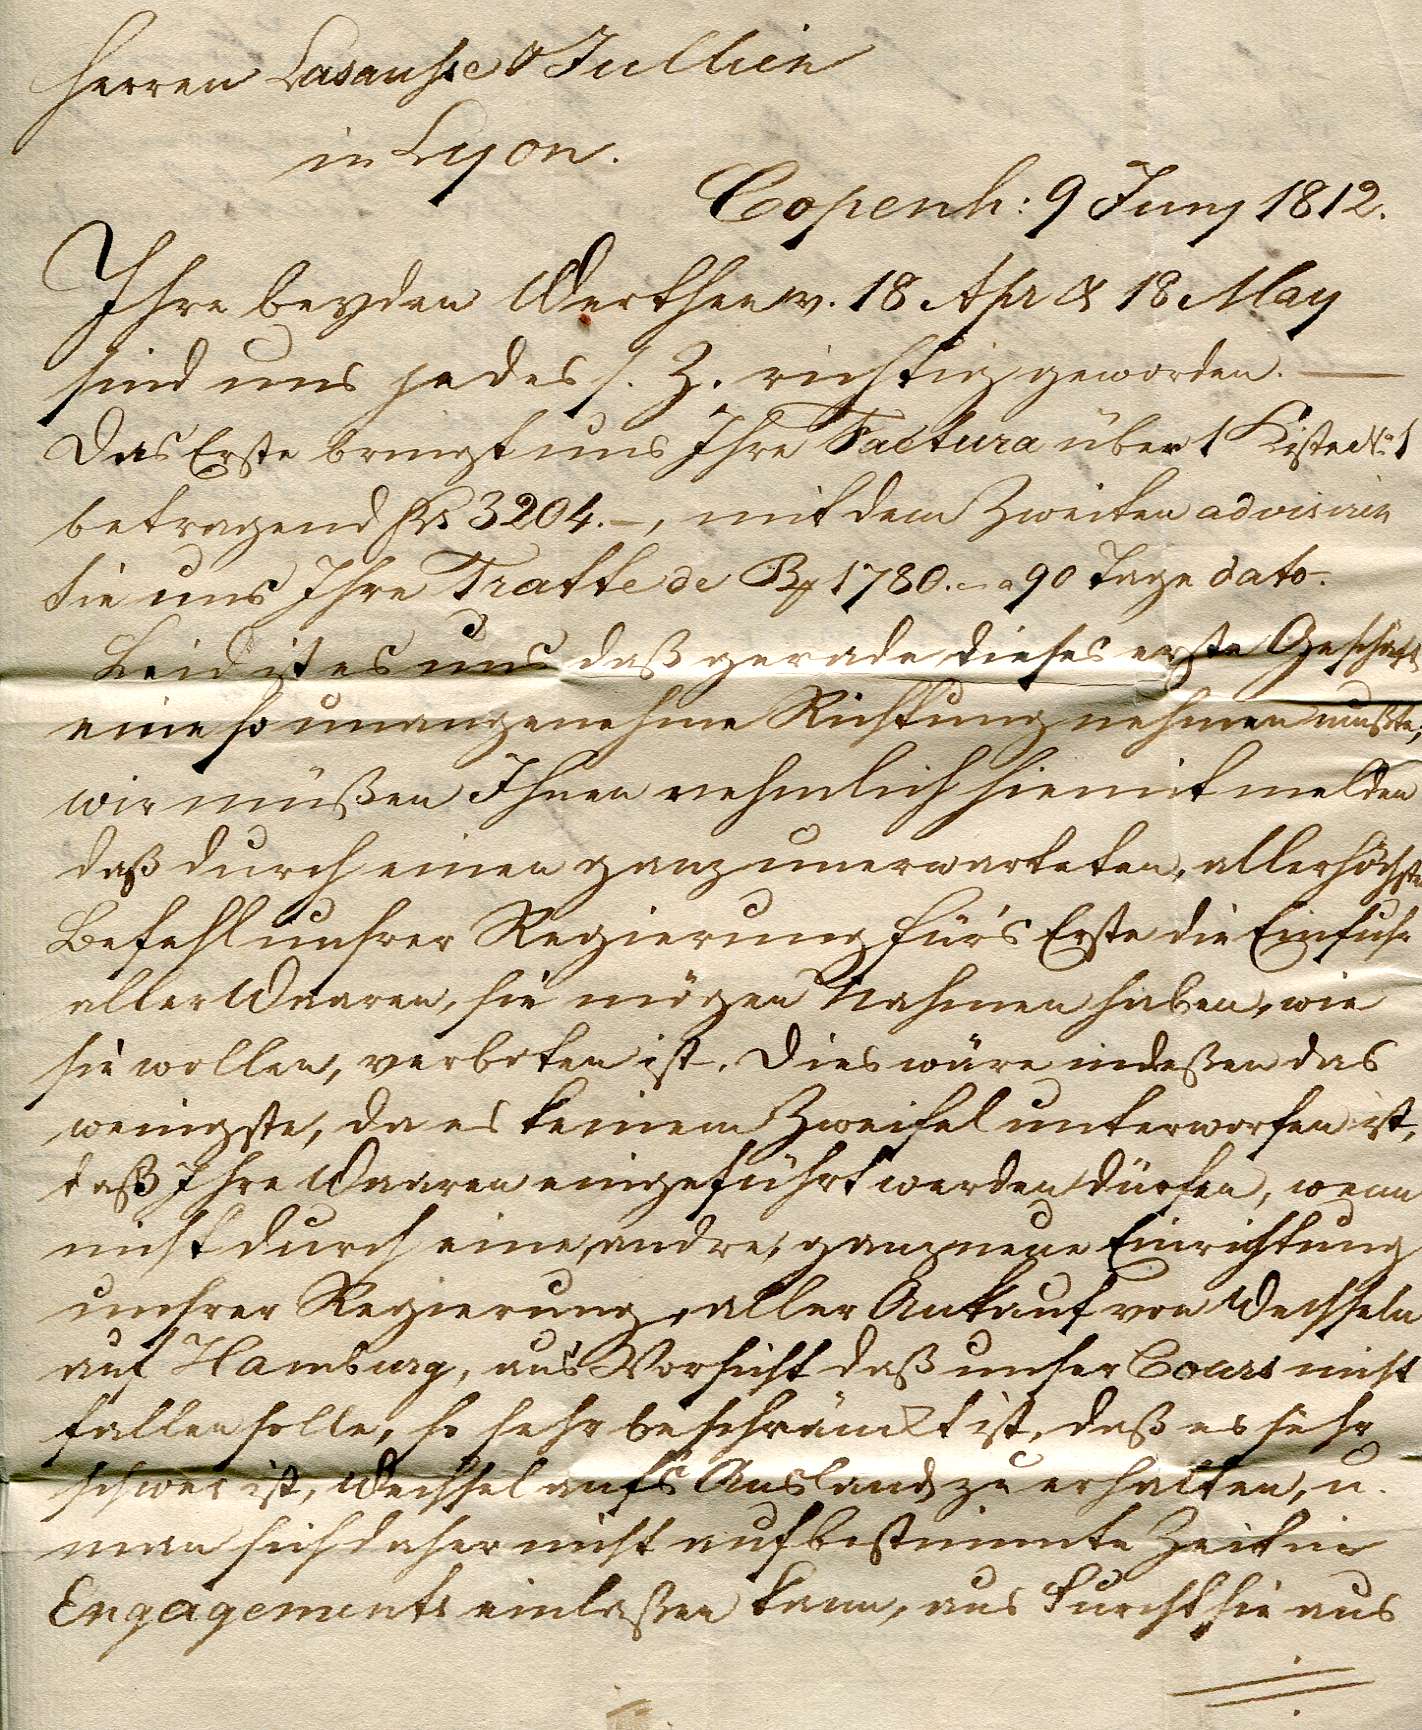 Herren Lasausse & Jullien
in Lyon.
Copenh: 9 Juny 1812.
Ihre beyden Werthen v. 18 Apr & 18 May
sind uns jedes s. Z. richtig geworden. —
Das Erste bringt uns Ihre Factura über 1 Kiste No 1
betragend frs 3204.–, mit dem Zweiten advisiren
Sie uns Ihre Tratte de 1780.– a 90 Tage dato.
Leid ist es uns daß gerade dieses erste Geschäft
eine so unangenehme Richtung nehmen mußte;
wir müßen Ihnen nehmlich hiemit melden
daß durch einen ganz unerwarteten, allerhöchsten
Befehl unsrer Regierung für's Erste die Einfuhr
aller Waaren, sie mögen Nahmen haben, wie
sie wollen, verboten ist. Dies wäre indeßen das
wenigste, da es keinem Zweifel unterworfen ist,
daß Ihre Waaren eingeführt werden dürfen, wenn
nicht durch eine, andre, ganz neue Einrichtung
unsrer Regierung, aller Ankauf von Wechseln
auf Hamburg, aus Vorsicht daß unser Cours nicht
fallen solle, so sehr beschränkt ist, daß es sehr
schwer ist, Wechsel aufs Ausland zu erhalten, u.
man sich daher nicht auf bestimmte Zeit in
Engagements einlaßen kann, aus Furcht sie aus